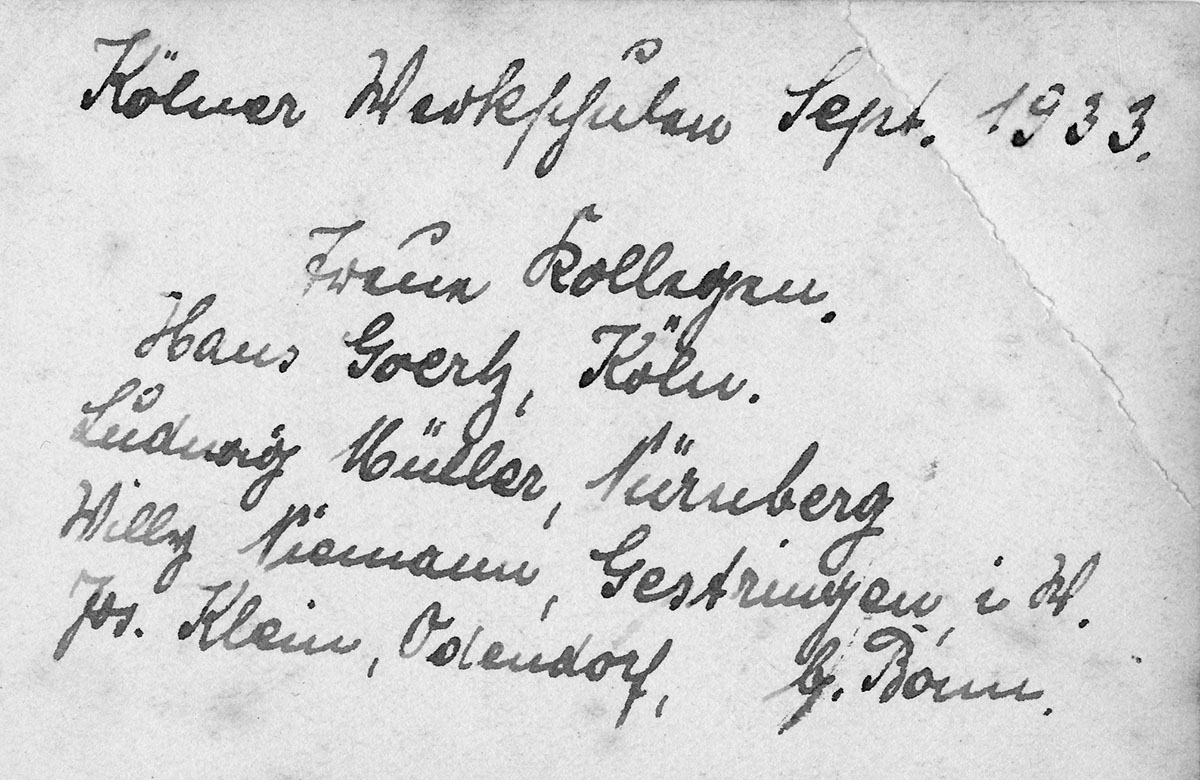 Kölner Werkschulen Sept. 1933.
Treue Kollegen.
Hans Goertz, Köln.
Ludwig Müller, Nürnberg
Willy Niemann, Gestringen, i W.
Jos. Klein, Odendorf, b. Bonn.